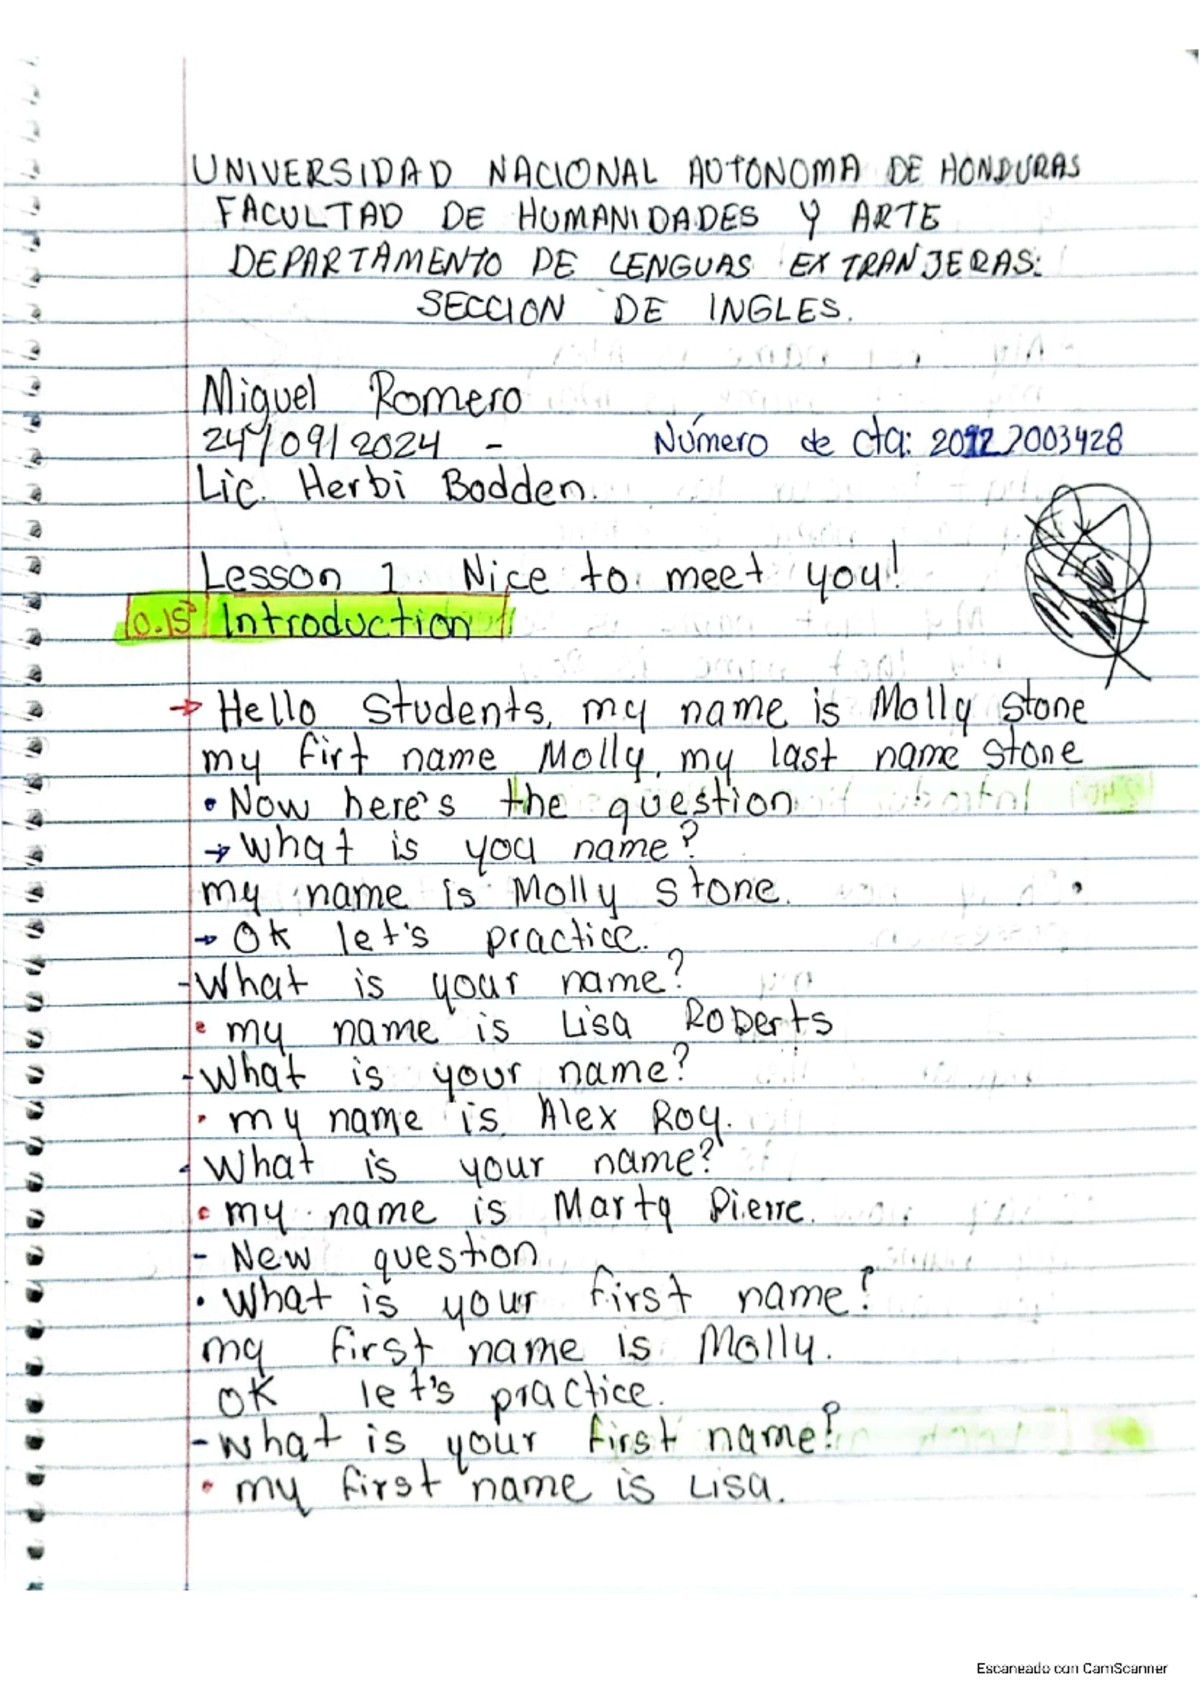 UNIVERSIDAD NACIONAL AUTONOMA DE HONDURAS
FACULTAD DE HUMANIDADES Y ARTE
DEPARTAMENTO DE LENGUAS EXTRANJERAS:
SECCION DE INGLES.
Miguel Romero
24/09/2024 - Número de cta:
Lic. Herbi Bodden.
Lesson 1 Nice to meet you!
Introduction
→ Hello Students, my name is Molly Stone
my firt name Molly, my last name Stone
• Now here's the question
→ What is you name?
my name is Molly Stone.
→ Ok let's practice.
- What is your name?
• my name is Lisa Roberts
- What is your name?
• my name is Alex Roy.
- What is your name?
• my name is Marta Pierre.
- New question
• What is your first name?
my first name is Molly.
OK let's practice.
- What is your first name?
• my first name is Lisa.
Escaneado con CamScanner